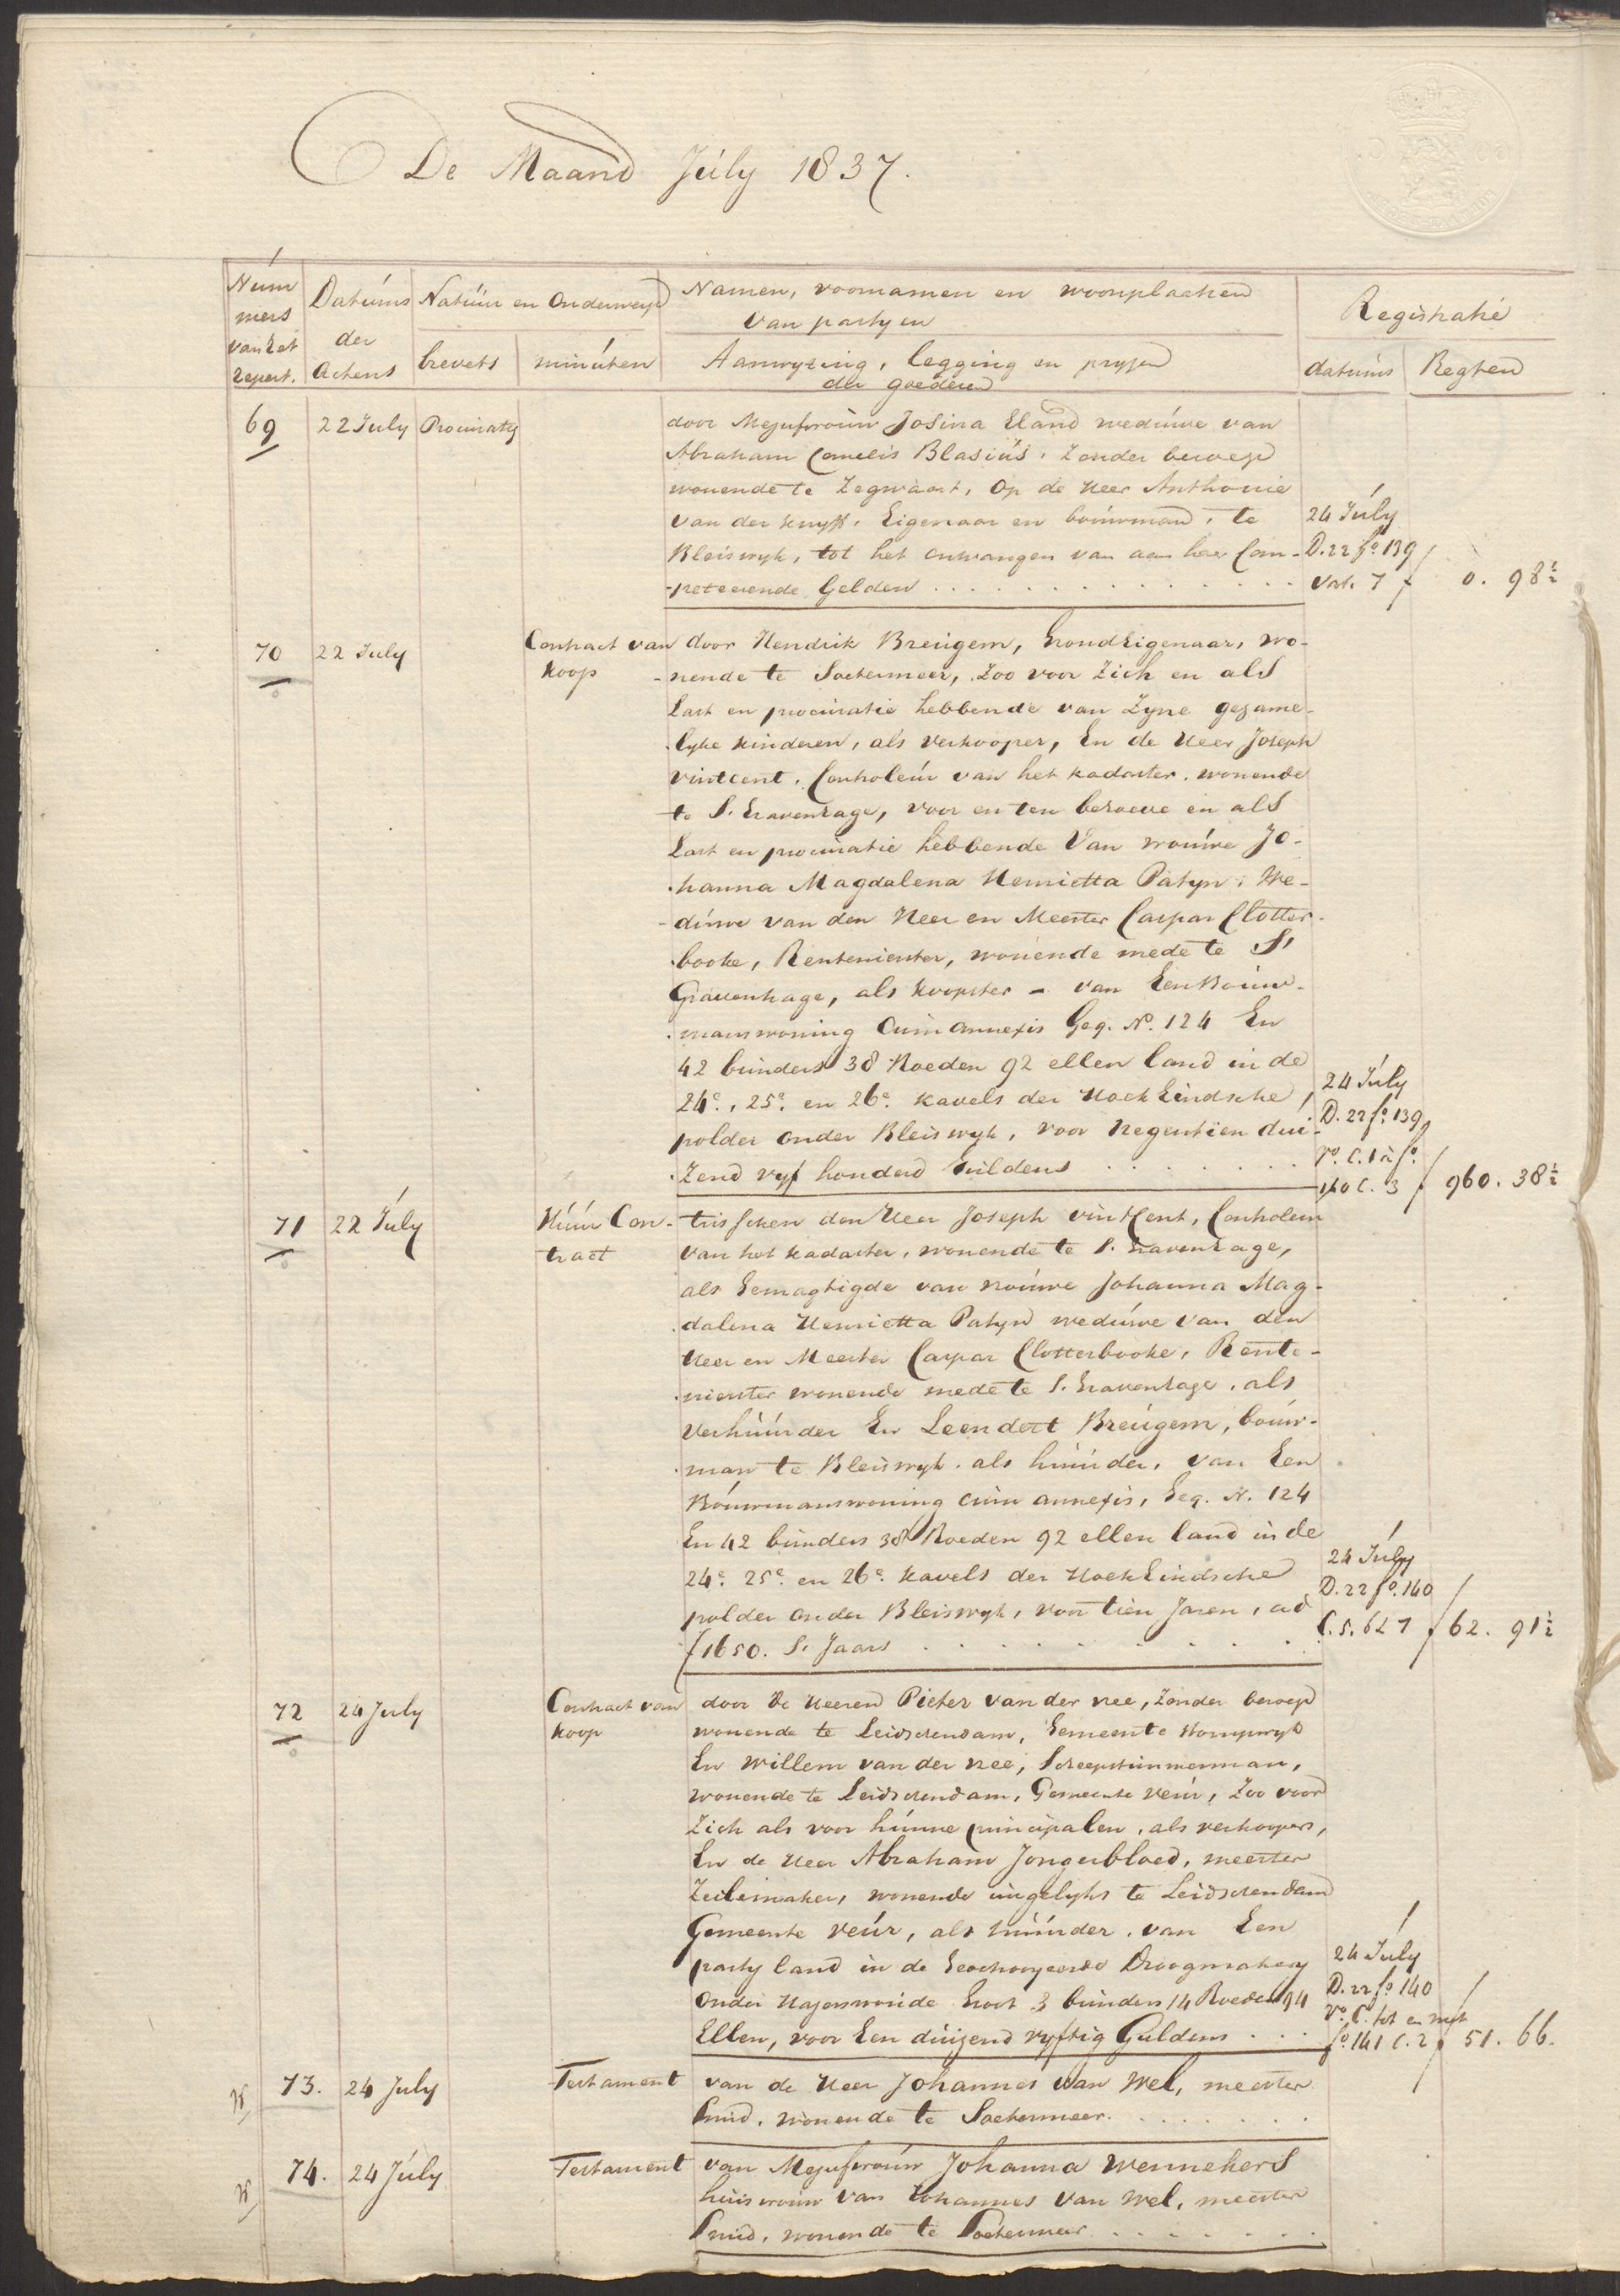 De Maand July 1837.
Num
mers
van het
Repert.
Datums
der
Actens
Natuur en Onderwerp
brevets
minuten
Namen, voornamen en woonplaatsen
van partyen
Aanwyzing, legging en pryzen
der goederen
Registratie
datums
Regten
69
22 July
Procuratie
door Mejufvrouw Josina Eland weduwe van
Abraham Cornelis Blasius, Zonder beroep
wonende te Zegwaart, Op de Heer Anthonie
van der Knyff, Eigenaar en bouwman, te
Bleiswyk, tot het ontvangen van aan haar Com-
-peteerende Gelden
24 July
D. 22 fo. 139
Vak. 7
f 0. 98½
70
22 July
Contract van
koop
door Hendrik Breugem, Grond Eigenaar, wo-
-nende te Soetermeer, Zoo voor Zich en als
Last en procuratie hebbende van Zyne gezame-
-lyke kinderen, als verkooper, En de Heer Joseph
Vintcent, Controleur van het kadaster, wonende
te S. Gravenhage, voor en ten behoeve en als
Last en procuratie hebbende Van vrouwe Jo-
-hanna Magdalena Henrietta Patyn, We-
-duwe van den Heer en Meester Caspar Clotter-
-booke, Rentenierster, wonende mede te S'
Gravenhage, als koopster - van Een Bouw-
-manswoning Cum annexis Geq. No. 124 En
42 bunders 38 Roeden 92 ellen land in de
24e., 25e. en 26e. kavels der Hoek Eindsche
polder onder Bleiswyk, voor Negentien dui-
-Zend vyf honderd Guldens
24 July
D. 22 fo. 139
vo. C. 1 à fo.
140 C. 3
f 960. 38½
71
22 July
Huur Con-
tract
tusschen den Heer Joseph vintcent, Controleur
van het kadaster, wonende te S. Gravenhage,
als Gemagtigde van vrouwe Johanna Mag-
-dalena Henrietta Patyn weduwe van den
Heer en Meester Caspar Clotterbooke, Rente-
-nierster wonende mede te S. Gravenhage, als
Verhuurder En Leendert Breugem, bouw-
-man te Bleiswyk, als huurder, van Een
Bouwmanswoning cum annexis, Geq. N. 124
En 42 bunders 38 Roeden 92 ellen land in de
24e. 25e. en 26e. kavels der Hoek Eindsche
polder onder Bleiswyk, voor tien Jaren, ad
f 1650. S. Jaars
24 July
D. 22 fo. 140
C. 5. 6 & 7
f 62. 91½
72
24 July
Contract van
koop
door de Heeren Pieter van der ree, Zonder beroep
wonende te Leidschendam, Gemeente Stompwyk
En Willem van der ree, Scheepstimmerman,
wonende te Leidschendam, Gemeente Veur, Zoo voor
Zich als voor hunne principalen, als verkoopers,
En de Heer Abraham Jongerbloed, meester
Zeilemaker, wonende ingelyks te Leidschendam
Gemeente Veur, als huurder, van Een
party land in de Geoctroyeerde Droogmakery
onder Hazerswoude Groot 3 bunders 14 Roeden 94
Ellen, voor Een duizend vyftig Guldens
24 July
D. 22 fo. 140
Vo. C. tot en met
fo. 141 C. 2
f 51. 66.
73.
24 July
Testament
van de Heer Johannes van Wel, meester
Smid, wonende te Soetermeer.
74.
24 July
Testament
van Mejufvrouw Johanna Wennekers
huisvrouw van Johannes van Wel, meester
Smid, wonende te Soetermeer